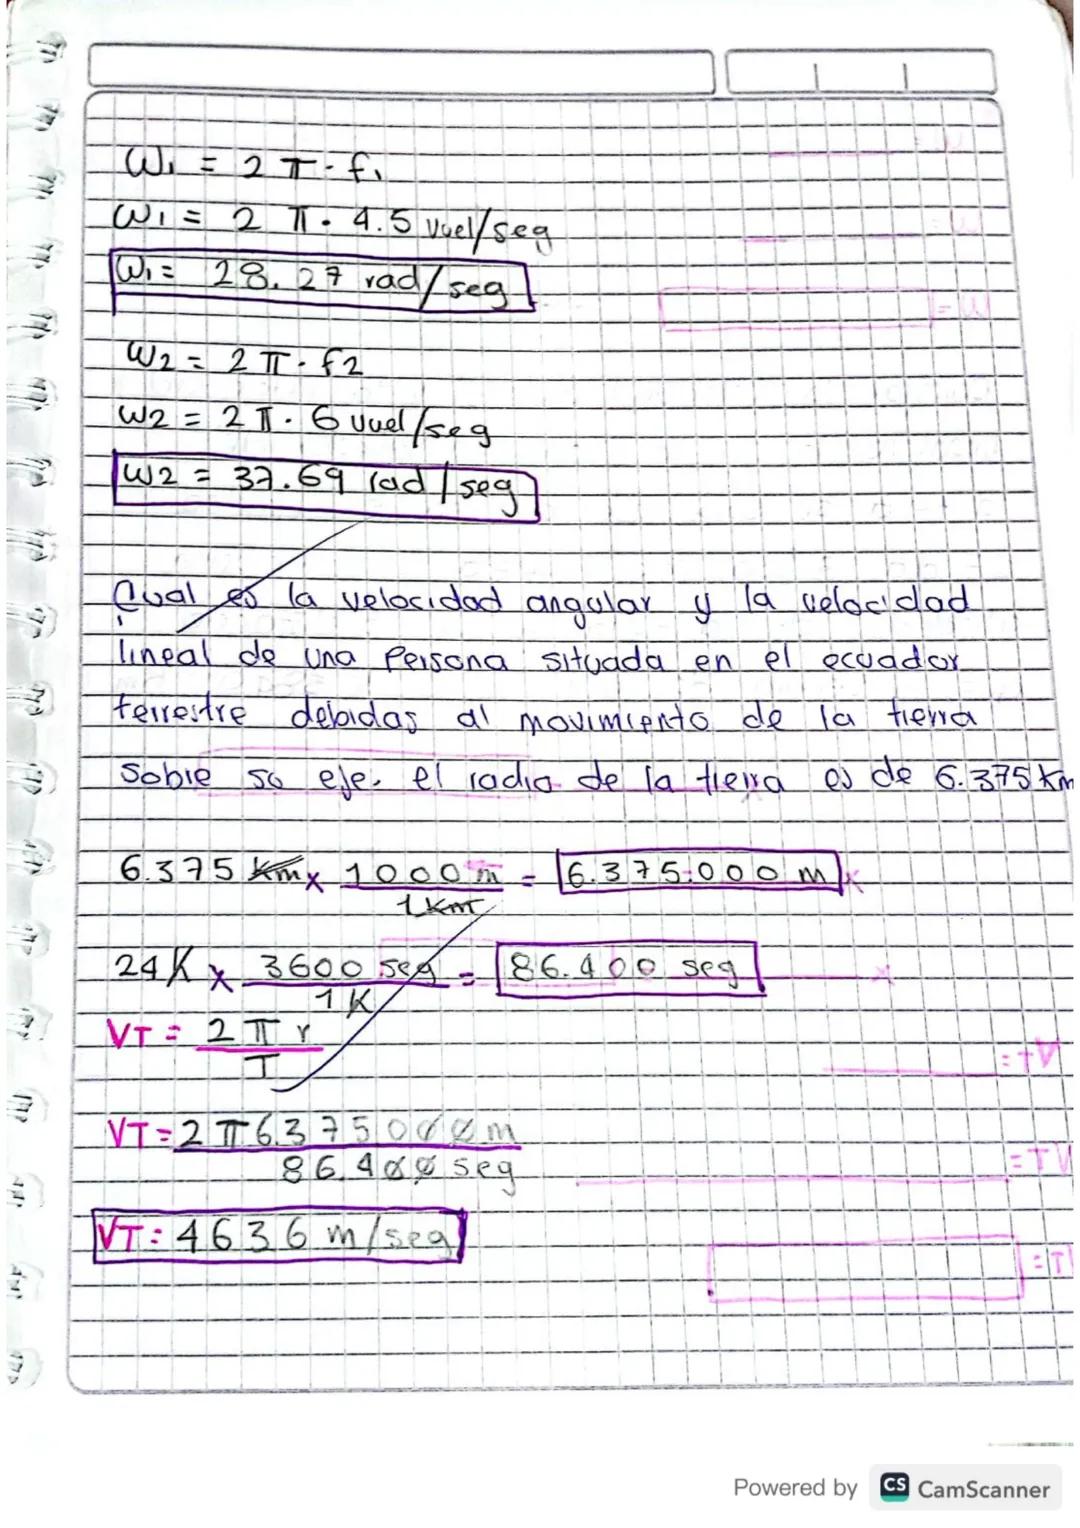 W₁ = 2 π · f₁
W₁ = 2 π · 4.5 vuel/seg
W₁ = 28.27 rad/seg
W2 = 2 π · f2
W2 = 2 π · 6 vuel/seg
W2 = 37.69 rad/seg
Cual es la velocidad angular y la velocidad
lineal de una Persona situada en el ecuador
terrestre debidas al movimiento de la tierra
sobre su eje. el radio de la tierra es de 6.375 km
6.375 Km x 1000 m / 1 Km = 6.375.000 m
24 K x 3600 seg / 1 K = 86.400 seg
VT = 2 π r / T
VT = 2 π 6.375000 m / 86.400 seg
VT = 4636 m/seg
Powered by CS CamScanner